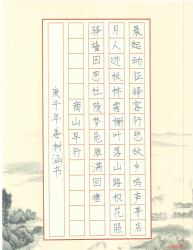 晨起动征铎客行悲故乡鸡声茅店
月人迹板桥霜槲叶落山路枳花照
驿墙因思杜陵梦凫雁满回塘
商山早行
年树涵书